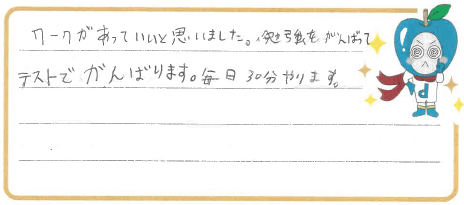 ワークがあっていいと思いました。勉強をがんばって
テストでがんばります。毎日30分やります。
d